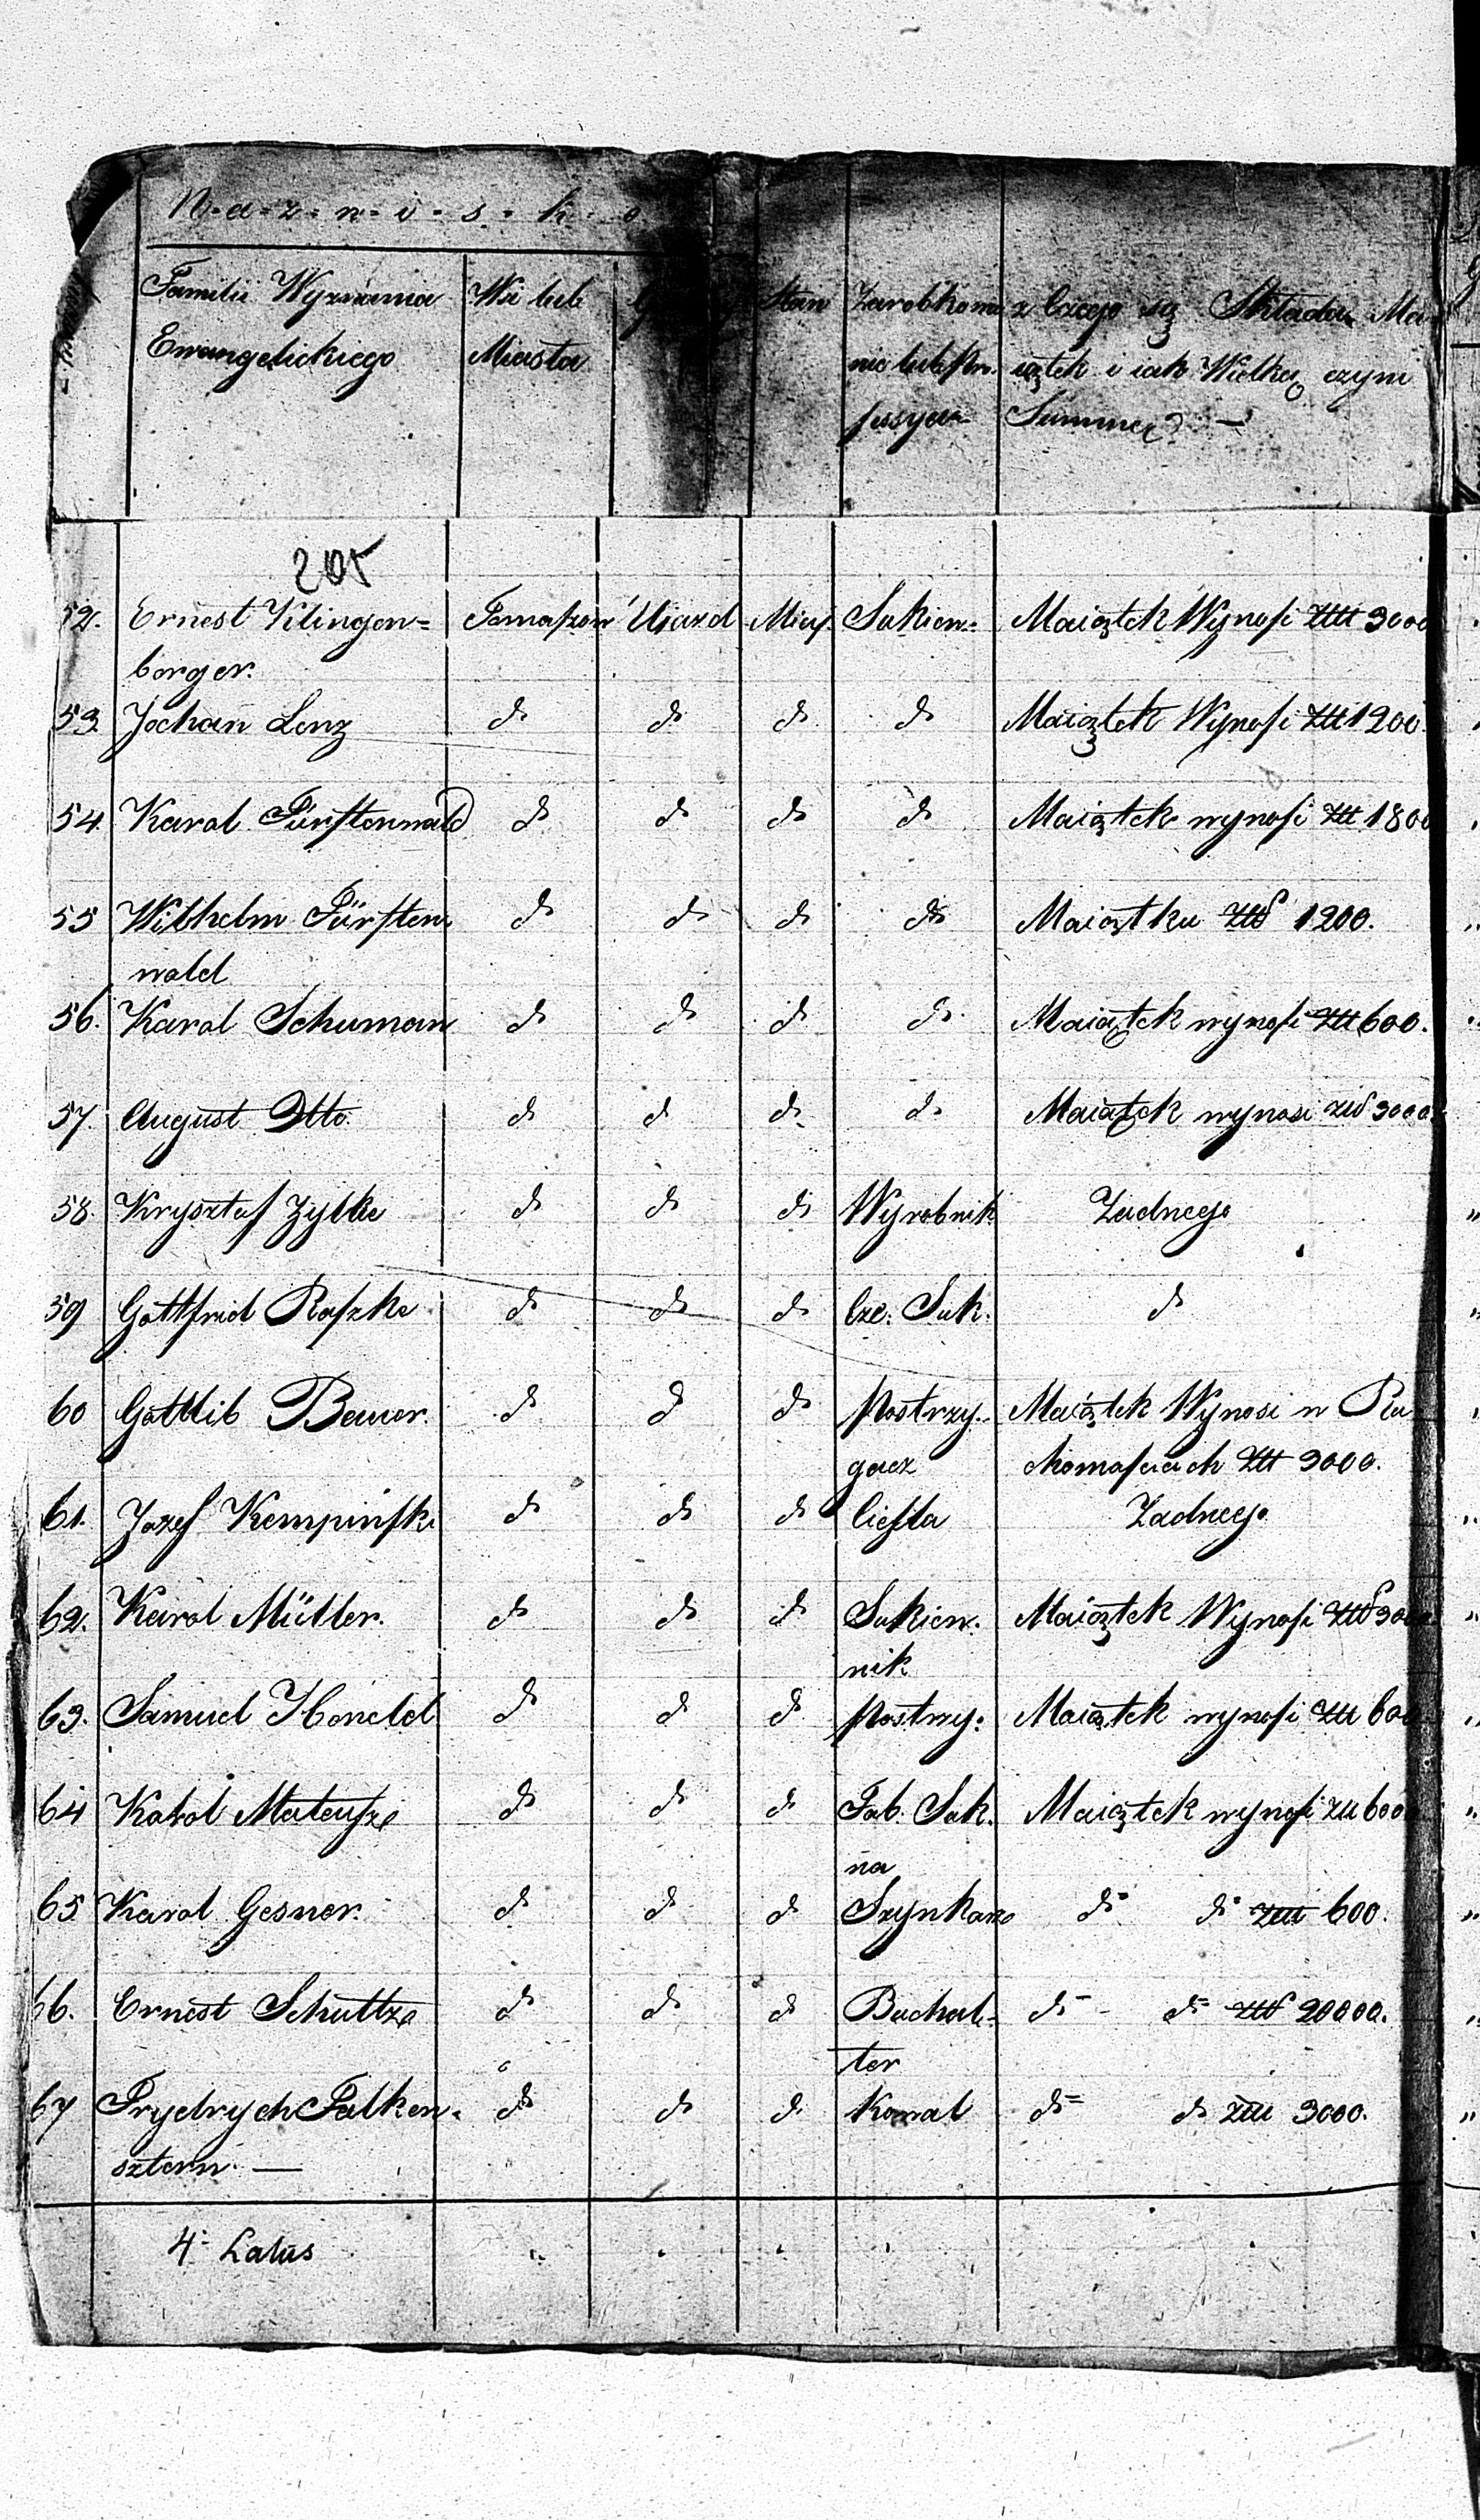 N-a-z-n-i-s-k-o
Familii Wyznania Ewangelickiego
Wsi lub Miasta
Stan
Zarobkowa nie lub pro. fessya
z Czego się Składa Ma iątek i iak Wielką czyni Summę? —
205
52. Ernest Klingen= Tomaszow Uiazd Mias. Sukien: Maiątek Wynosi Złł 3000
berger.
53. Jochan Lenz do do do do Maiątek Wynosi Złł 1200
54. Karol Fürstenwald do do do do Maiątek wynosi Złł 1800
55 Wilhelm Fürsten do do do do Maiątku Złł 1200.
wald
56. Karol Schuman do do do do Maiątek wynosi Złł 600.
57. August Otto. do do do do Maiątek wynosi Złł 3000.
58. Krysztof Zylke do do do Wyrobnik Żadnego
59 Gottfried Raszke do do do Cze: Suk. do
60 Gottlib Bauer. do do do Postrzy- Maiątek Wynosi w Ru
gacz chomościach Złł 3000.
61. Jozef Kempinski do do do Ciesla Żadnego
62. Karol Müller. do do do Sukien- Maiątek Wynosi Złł 3000
nik
63. Samuel Hendel do do do Postrzy: Maiątek wynosi Złł 600
64 Karol Mateusze do do do Fab. Suk. Maiątek wynosi Złł 6000
na
65 Karol Gesner. do do do Szynkarz do do Złł 600.
66. Ernest Schultze do do do Buchal- do do Złł 20000.
ter
67 Frydrych Falken- do do do Kowal do do Złł 3000.
sztern. —
4: Latus